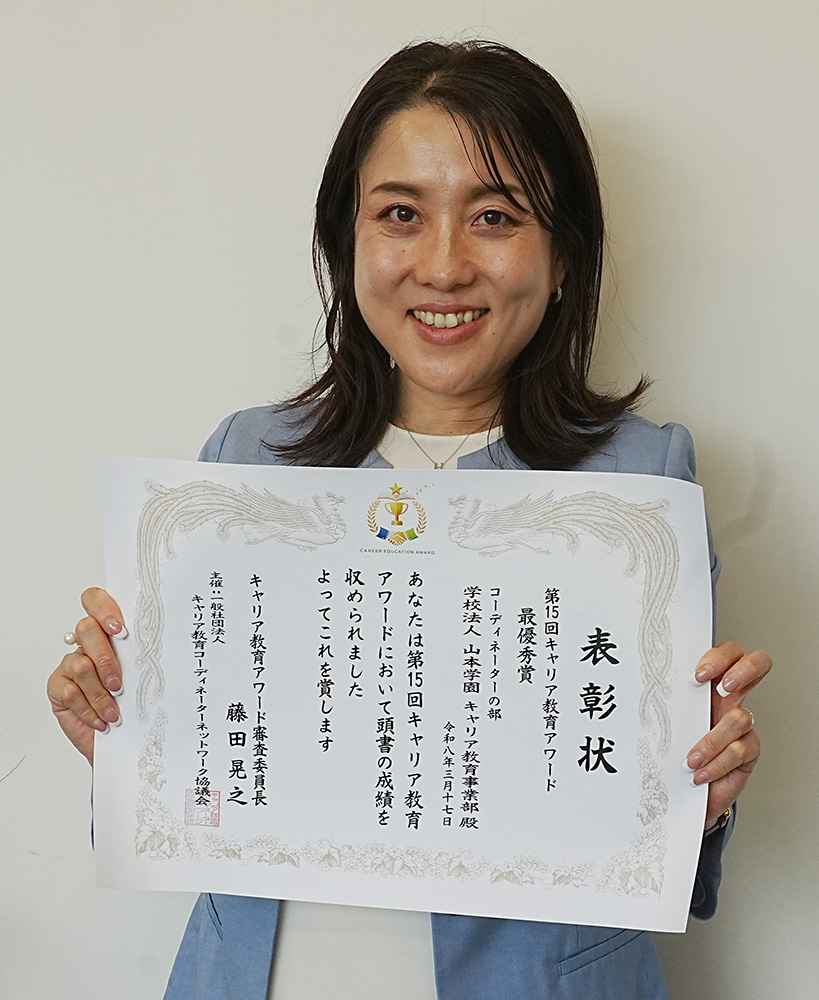 CAREER EDUCATION AWARD
表彰状
第15回キャリア教育アワード
最優秀賞
コーディネーターの部
学校法人 山本学園 キャリア教育事業部 殿
令和八年三月十七日
あなたは第15回キャリア教育
アワードにおいて頭書の成績を
収められました
よってこれを賞します
キャリア教育アワード審査委員長
藤田晃之
主催：一般社団法人
キャリア教育コーディネーターネットワーク協議会